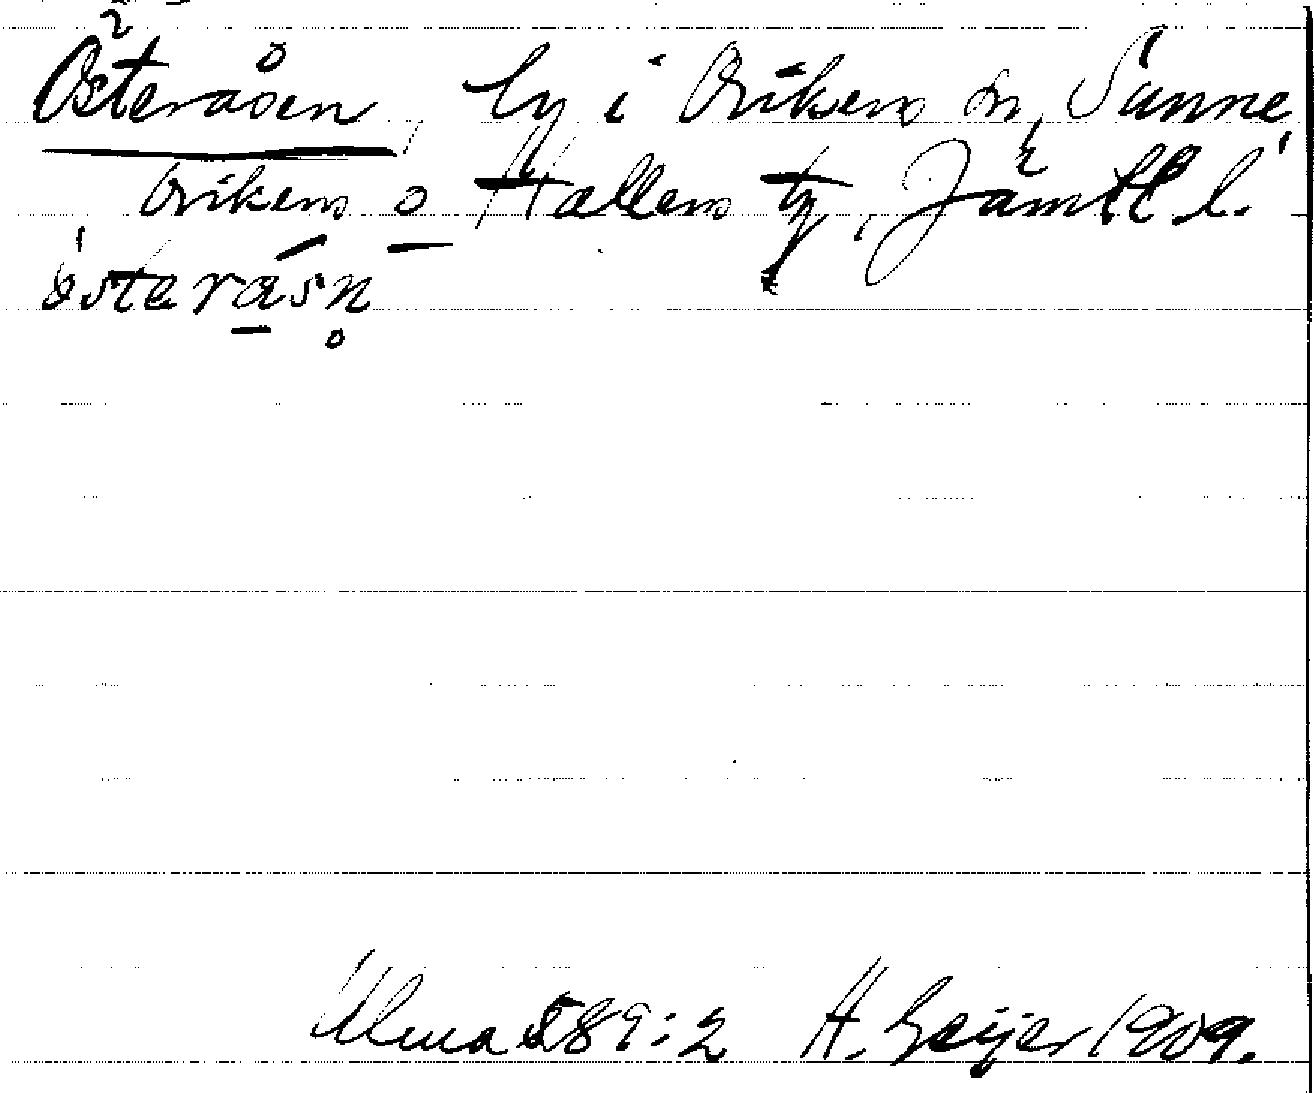 Österåsen, by i Ovikens sn, Sunne,
Ovikens o Hallens tg, Jämtl l.
österåsn̥
Ulma 589:2 H. Geijer 1909.